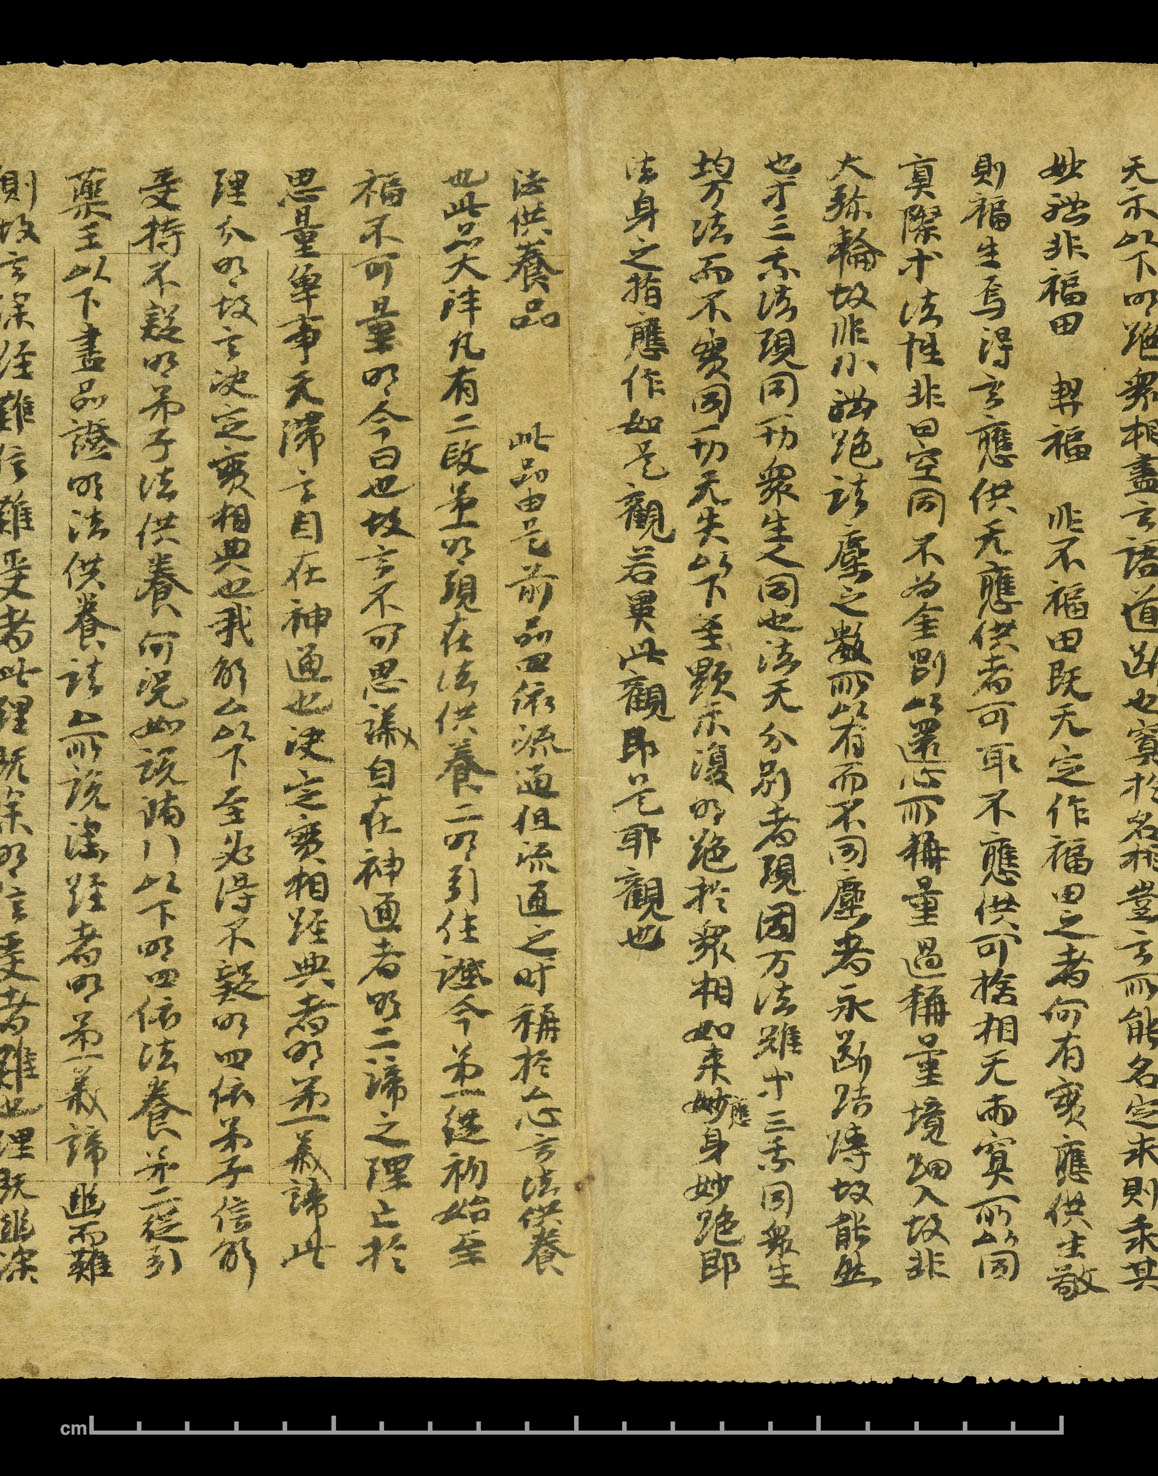 无示以下明絶衆相盡言語道斷也寞於名相豈言而能名定求則乖其
妙號非福田 畀福 非不福田既无定作福田之者何有實應供生敬
則福生焉得言應供无應供者可取不應供可捨相无而寞所以同
真際等法性非田空同不为金剛以還心所稱量過稱量境細入故非
大弥輪故非小體絶諸塵之數所以有而不同塵者永斷結縛故能然
也等三示法現同动衆生人同也法无分别者現因万法雖等三示同衆生
均万法而不實同动无失以下至顯示復明絶於衆相如来妙應身妙絶即
法身之指應作如是觀若異此觀即是耶觀也
法供養品 此品由是前品四依流通但流通之时稱於心言法供養
也此品大詳凡有二段第一明現在法供養二明引往證今第一從初始至
福不可量明今日也故言不可思議自在神通者明二諦之理亡於
思量卑事无滞言自在神通也決定實相經典者明第一義諦此
理分明故言決定實相典也我解以下至必得不疑明四依弟子信解
受持不疑明弟子法供養何況如說脩行以下明四依法養第二從引
藥王以下盡品證明法供養諸仏所說深經者明第一義諦 而難
則故言深經難信難受者此理既深明信受者難也理既 深